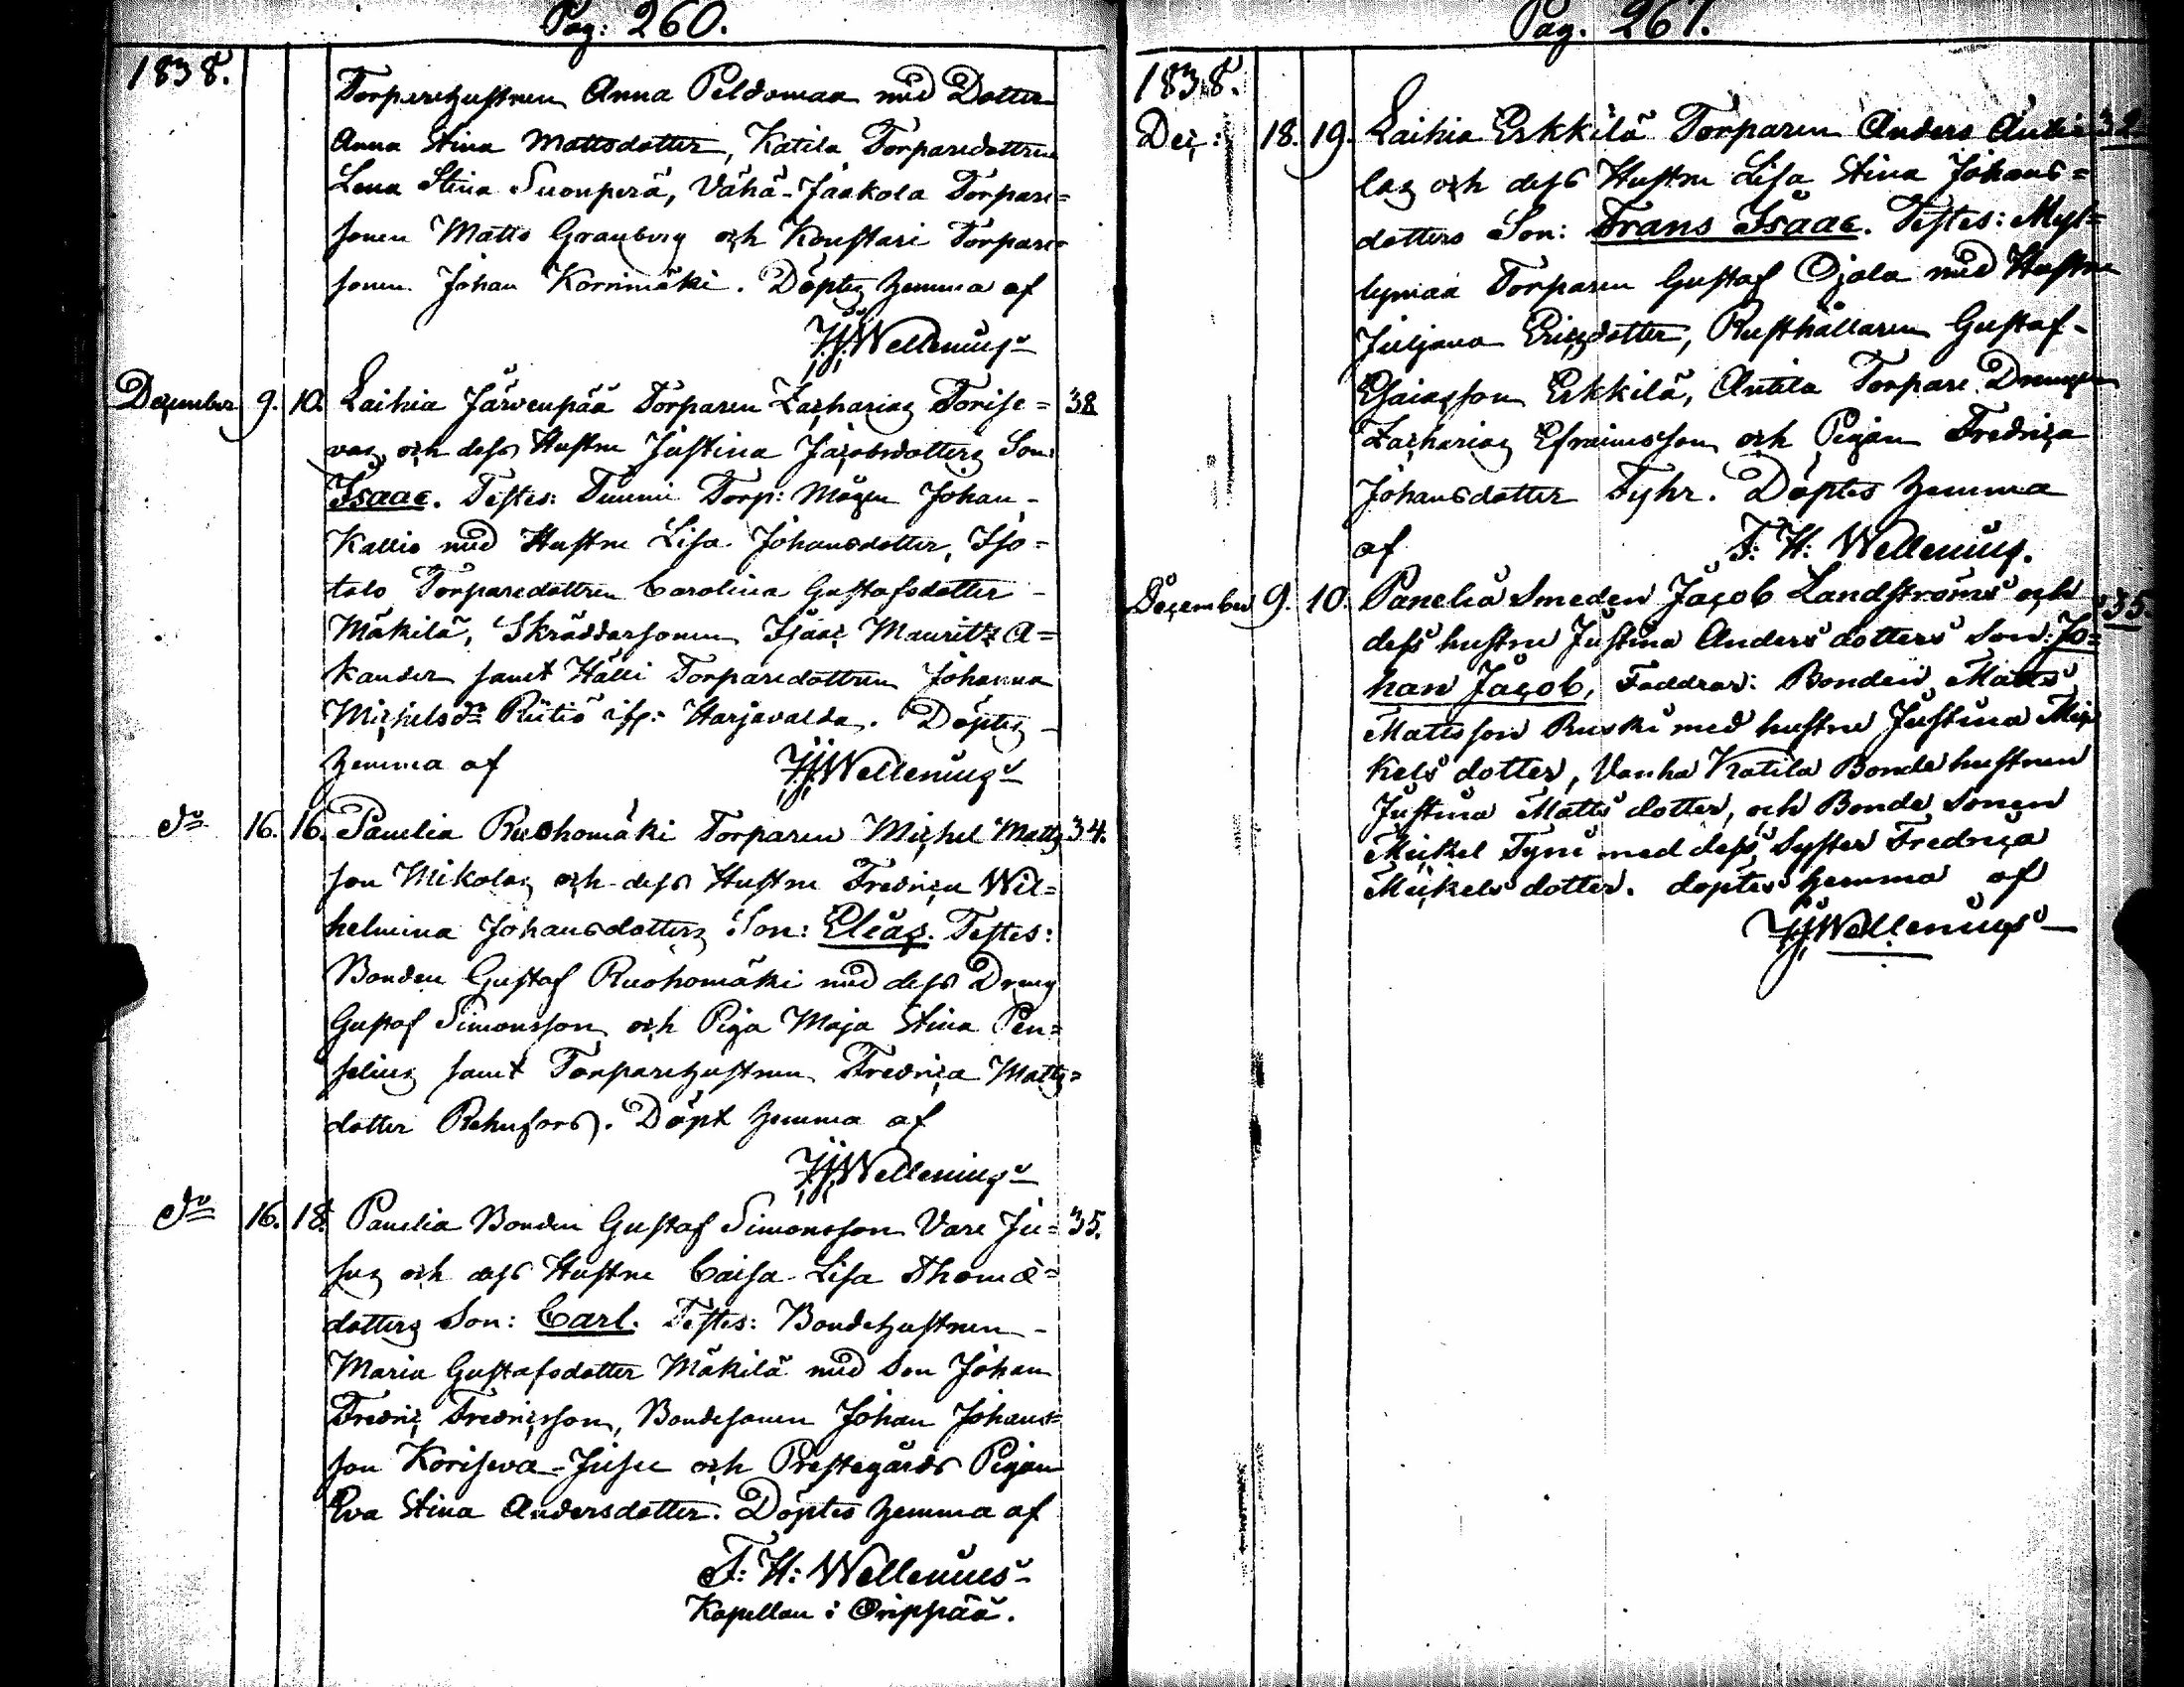 Pag: 260.
1838.
Torparehustrun Anna Peldomaa med Dotter
Anna Stina Mattsdotter, Katila Torparedottren
Lena Stina Suonperä, Vähä-Jaakola Torpare=
sonen Matts Granberg och Konstari Torpare=
sonen Johan Kornimäki. Döptes hemma af
F.H. Wellenius
December 9. 10. Laihia Järvenpää Torparen Zacharias Torise= 38
vas och dess Hustru Justina Jacobsdotters Son:
Isaac. Testes: Timmi Torp: Mågen Johan
Kallio med Hustru Lisa Johansdotter, Iso=
talo Torparedottren Carolina Gustafsdotter
Mäkilä, Skräddarsonen Isaac Mauritz A=
kander samt Hälli Torparedottren Johanna
Michelsdr Riitiö ifr: Harjavalda. Döptes
hemma af F.H. Wellenius
do 16. 16. Panelia Ruohomäki Torparen Michel Matts 34.
son Mikolas och dess Hustru Fredrica Wil=
helmina Johansdotters Son: Elias. Testes:
Bonden Gustaf Ruohomäki med dess Dreng
Gustaf Simonsson och Piga Maja Stina Pen=
selius samt Torparehustrun Fredrica Matts=
dotter Rehnfors. Döpt hemma af
F.H. Wellenius
do 16. 18. Panelia Bonden Gustaf Simonsson Vare Ju= 35.
sus och dess Hustru Caisa Lisa Thomæ=
dotters Son: Carl. Testes: Bondehustrun
Maria Gustafsdotter Mäkilä med Son Johan
Fredric Fredricsson, Bondesonen Johan Johans=
son Koriseva-Jusu och Prestegårds Pigan
Eva Stina Andersdotter. Döptes hemma af
F: H: Wellenius
Kapellan i Orippää.
Pag. 261.
1838.
Dec: 18. 19. Laihia Erkkilä Torparen Anders Anti= 32
las och dess Hustru Lisa Stina Johans=
dotters Son: Frans Isaac. Testes: Myl=
lymaa Torparen Gustaf Ojala med Hustru
Juljana Ericsdotter, Rusthållaren Gustaf
Esaiasson Erkkilä, Antila Torpare Drengen
Zacharias Efraimsson och Pigan Fredrica
Johansdotter Fyhr. Döptes hemma
af F: H: Wellenius.
December 9. 10. Panelia Smeden Jacob Landströms och 35
dess hustru Justina Andersdotters Son: Jo=
han Jacob, Faddrar: Bonden Matts
Mattsson Ruski med hustru Justina Mi
kels dotter, Vanha Katila Bonde hustrun
Justina Matts dotter, och Bonde Sonen
Mickel Tyni med dess Syster Fredrica
Mickels dotter. döptes hemma af
F.H. Wellenius